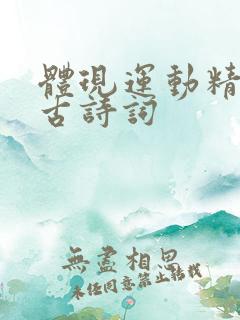 體現運動精
古詩詞
無盡相思
未經同意禁止轉載